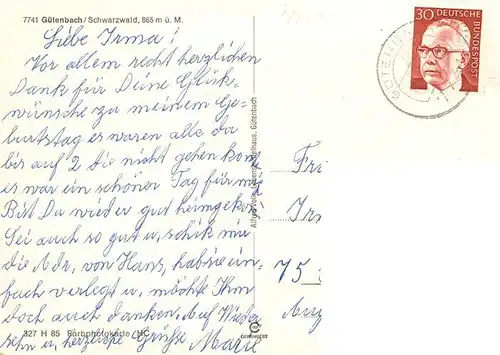 7741 Gütenbach/Schwarzwald, 865 m ü. M.
Liebe Irma!
Vor allem recht herzlichen
Dank für Deine Glück-
wünsche zu meinem Ge-
burtstag es waren alle da
bis auf 2 die nicht gehen konn
es war ein schöner Tag für mich
Bist Du wieder gut heimgekom
Sei auch so gut u. schik mir
die Adr. von Hans, hab sie ein-
fach verlegt u. möchte Ihm
doch auch danken. Auf Wieder
sehn u. herzliche Grüße
327 H 85 Farbphotokarte
30 DEUTSCHE BUNDESPOST
Fr
Irm
75